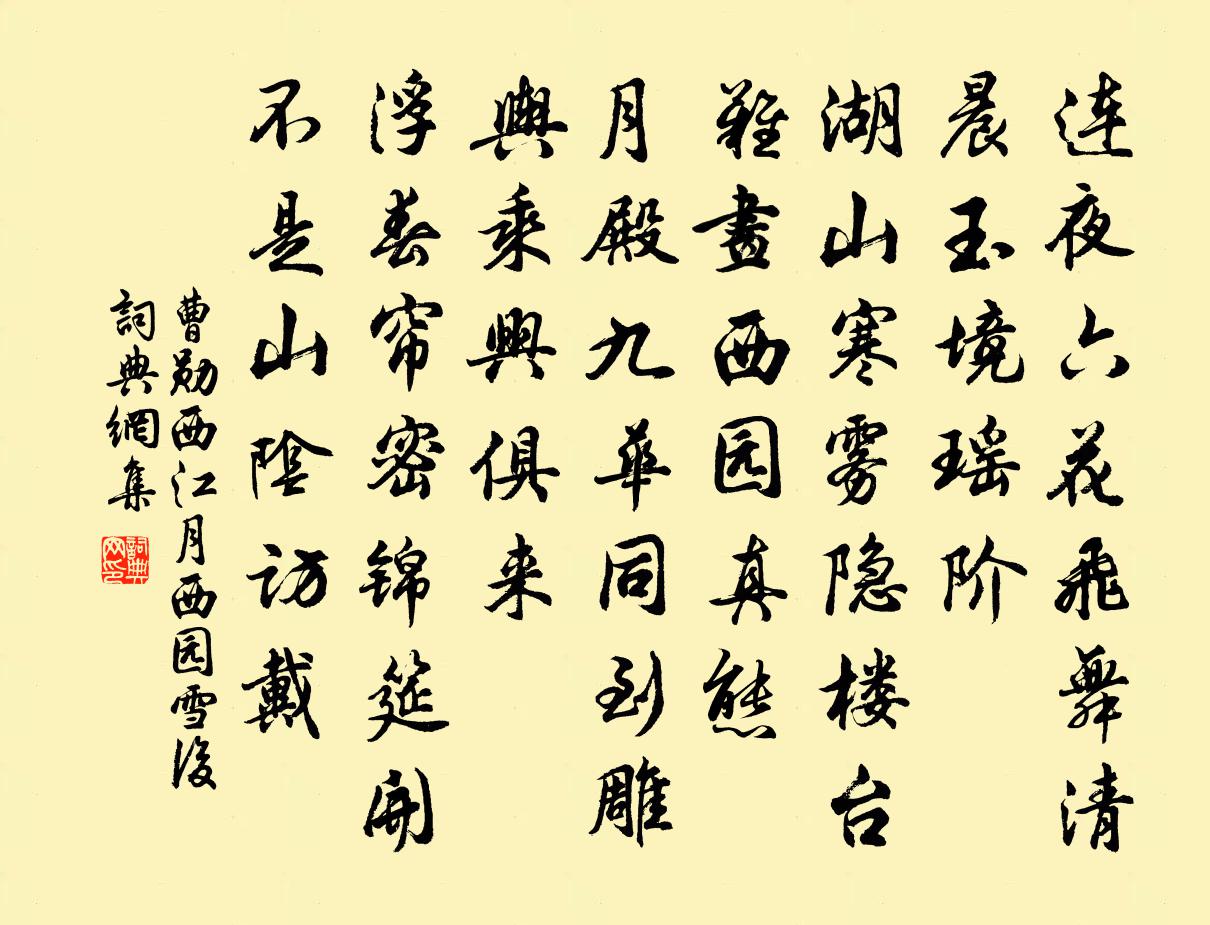 连夜六花飛舞清
晨玉境瑶阶
湖山寒雾隐楼台
難畫西园真態
月殿九華同到雕
輿乘興俱来
浮春帘密锦筵開
不是山陰访戴
曹勋西江月西园雪後
詞典網集
詞典
网印